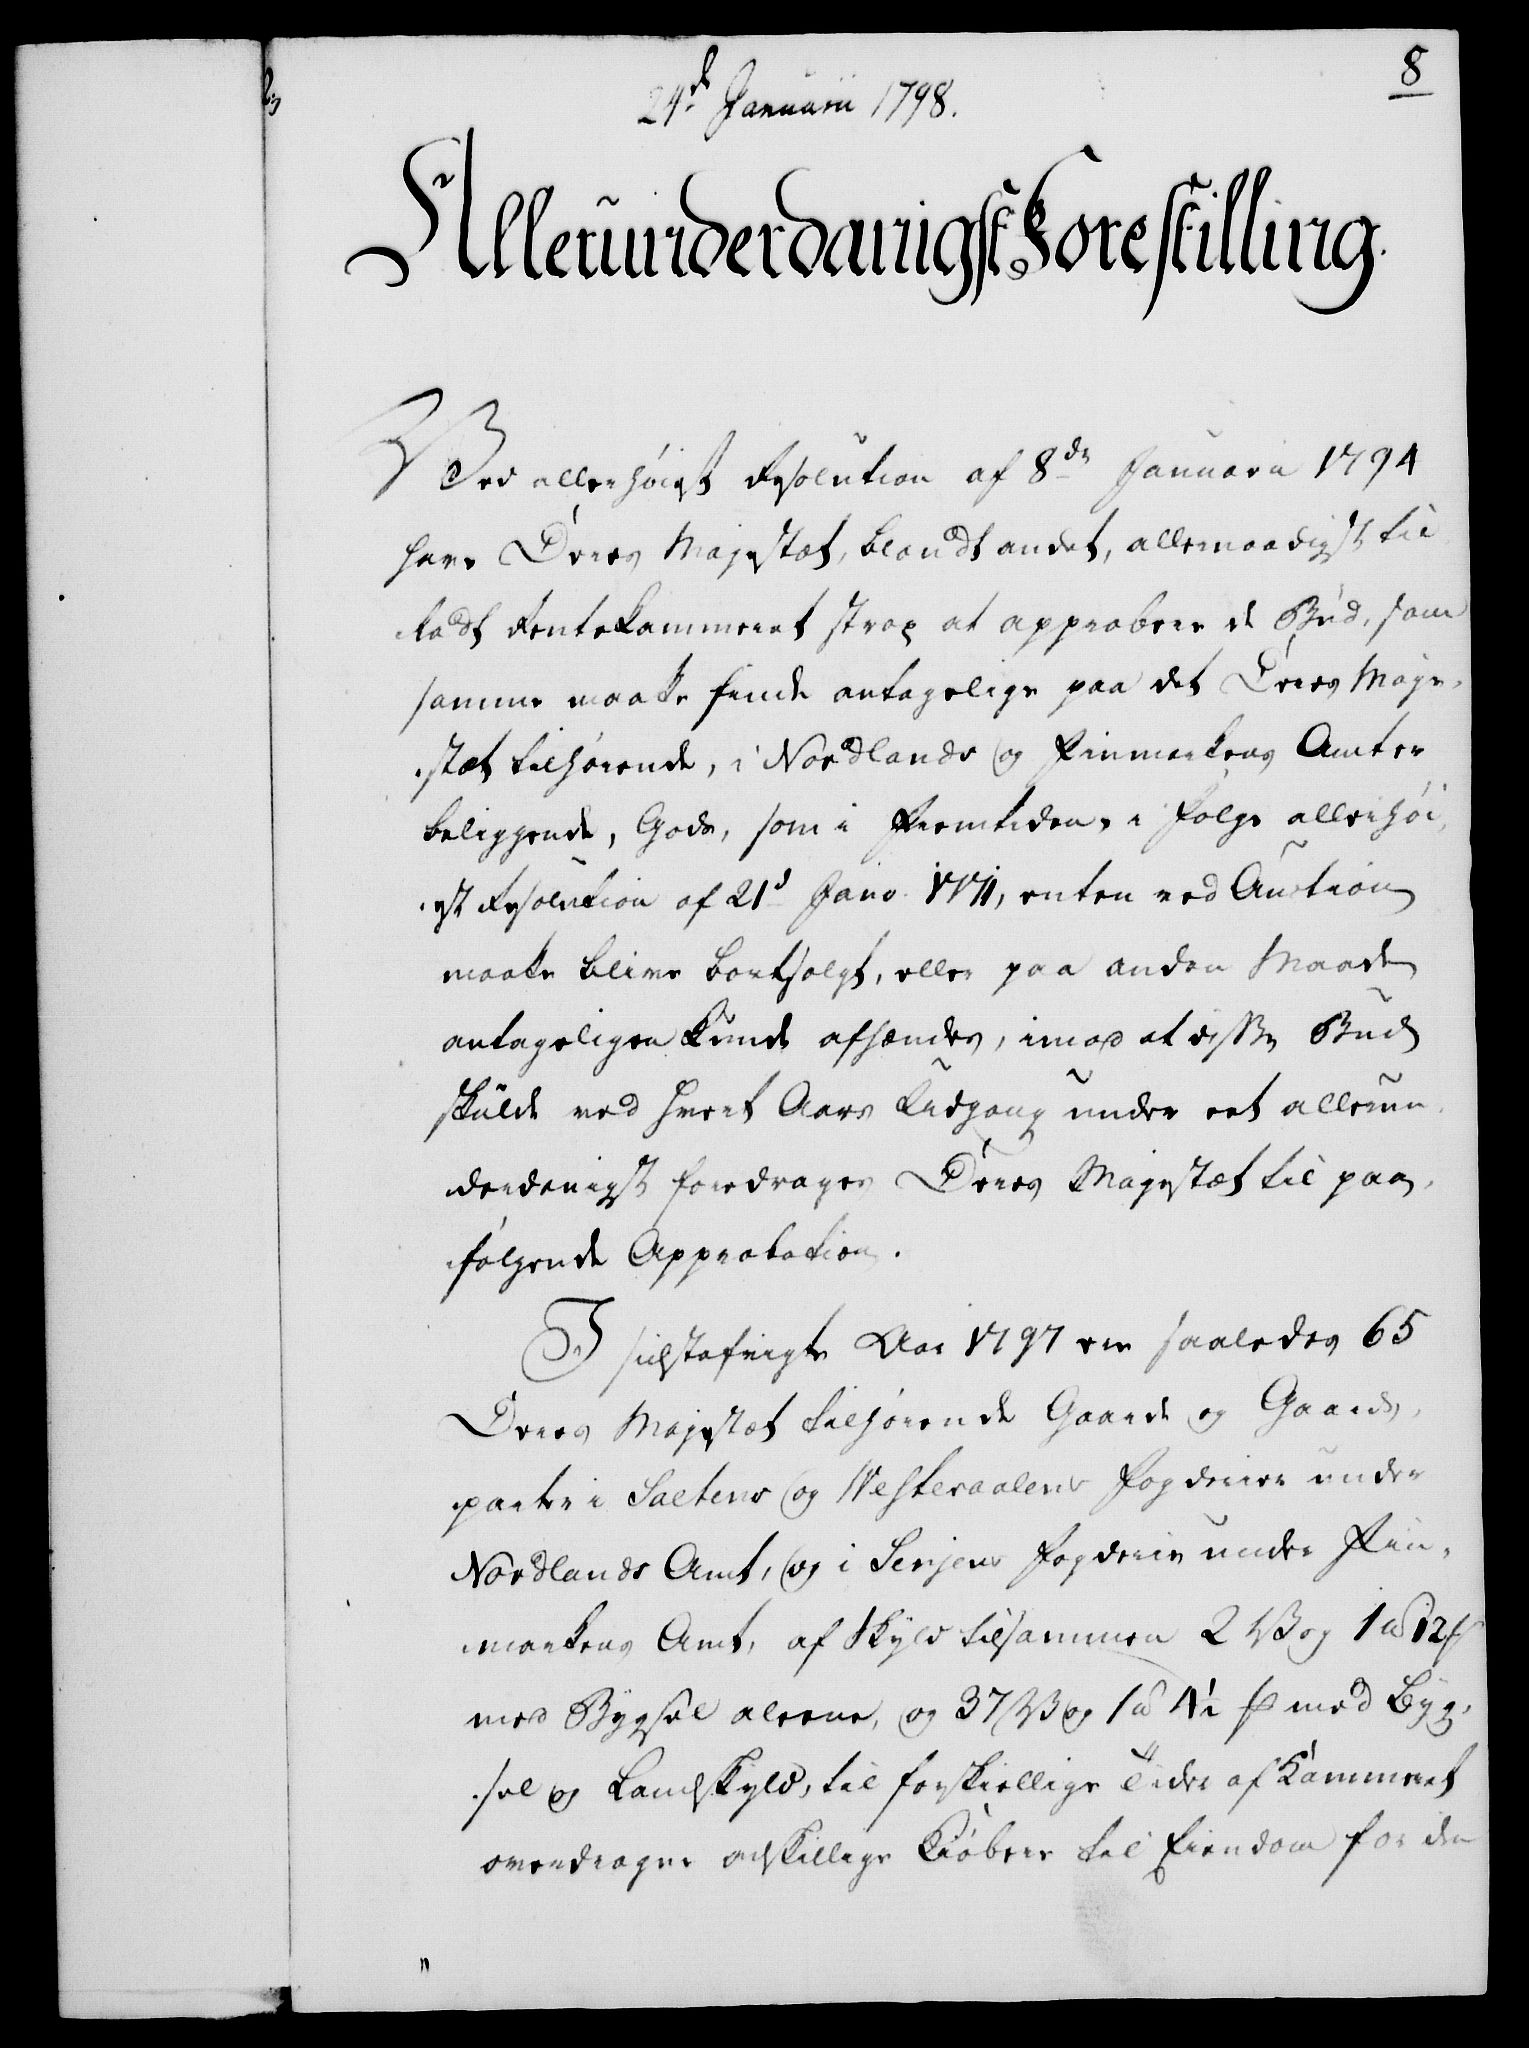 8
24de Januarii 1798.
Allerunderdanigst Forestilling.
Ved allerhøiest Resolution af 8de Januarii 1794
have Deres Majestæt, blandt andet, allernaadigst til
ladt Rentekammeret strax at approbere de Bud, som
samme maatte finde antagelige paa det Deres Maje-
stæt tilhørende, i Nordlands og Finmarkens Amter
beliggende, Gods, som i Fremtiden, i Følge allerhøi-
est Resolution af 21d Janv. 1771, enten ved Auction
maatte blive bortsolgt, eller paa anden Maade
antageligen kunde afhændes, imod at disse Bud
skulde ved hvert Aars Udgang under eet allerun-
derdanigst foredrages Deres Majestæt til paa-
følgende Approbation.
I sidstafvigte Aar 1797 ere saaledes 65
Deres Majestæt tilhørende Gaarde og Gaards-
parter i Saltens og Westeraalens Fogderier under
Nordlands Amt, og i Senjens Fogderie under Fin-
markens Amt, af Skyld tilsammen 2 Vog 1 12
med Bygsel alene, og 37 Vog 1 4½ med Byg-
sel og Landskyld, til forskiellige Tider af Kammeret
overdragne adskillige Kiøbere til Eiendom for den